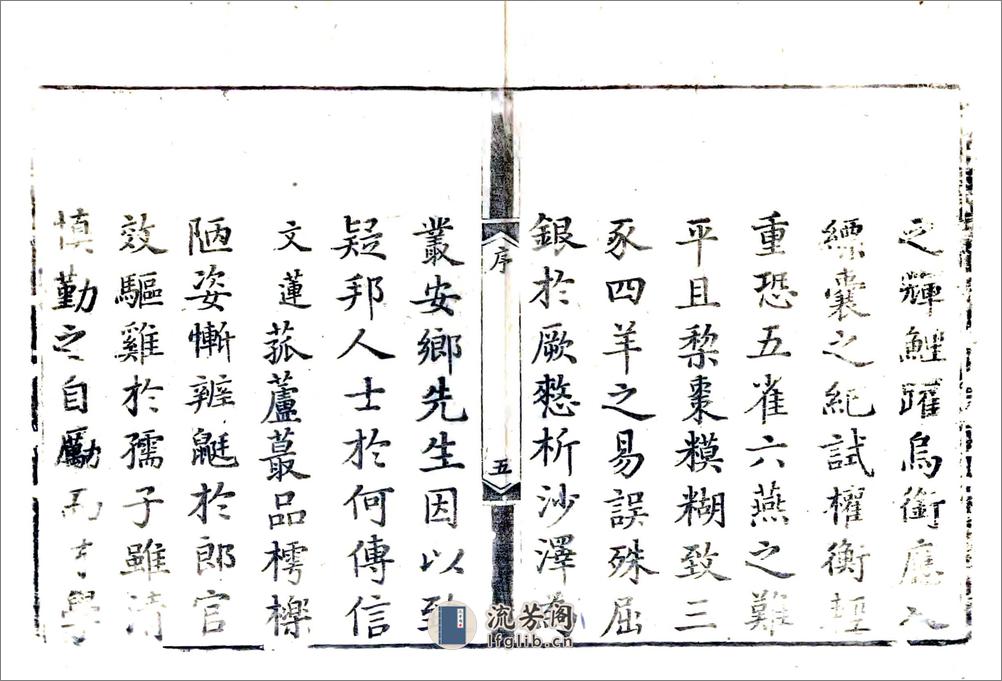 之輝鯉躍烏銜應入
縹囊之紀試權衡輕
重恐五雀六燕之難
平且黎棗糢糊致三
豕四羊之易誤殊屈
銀於厥憖析沙澤
序
五
叢安鄉先生因以致
疑邦人士於何傳信
文蓮菰蘆蕞品樗櫟
陋姿慚辨鼮於郎官
效驅雞於孺子雖清
慎勤之自勵而 學
流芳阁
lfglib.cn